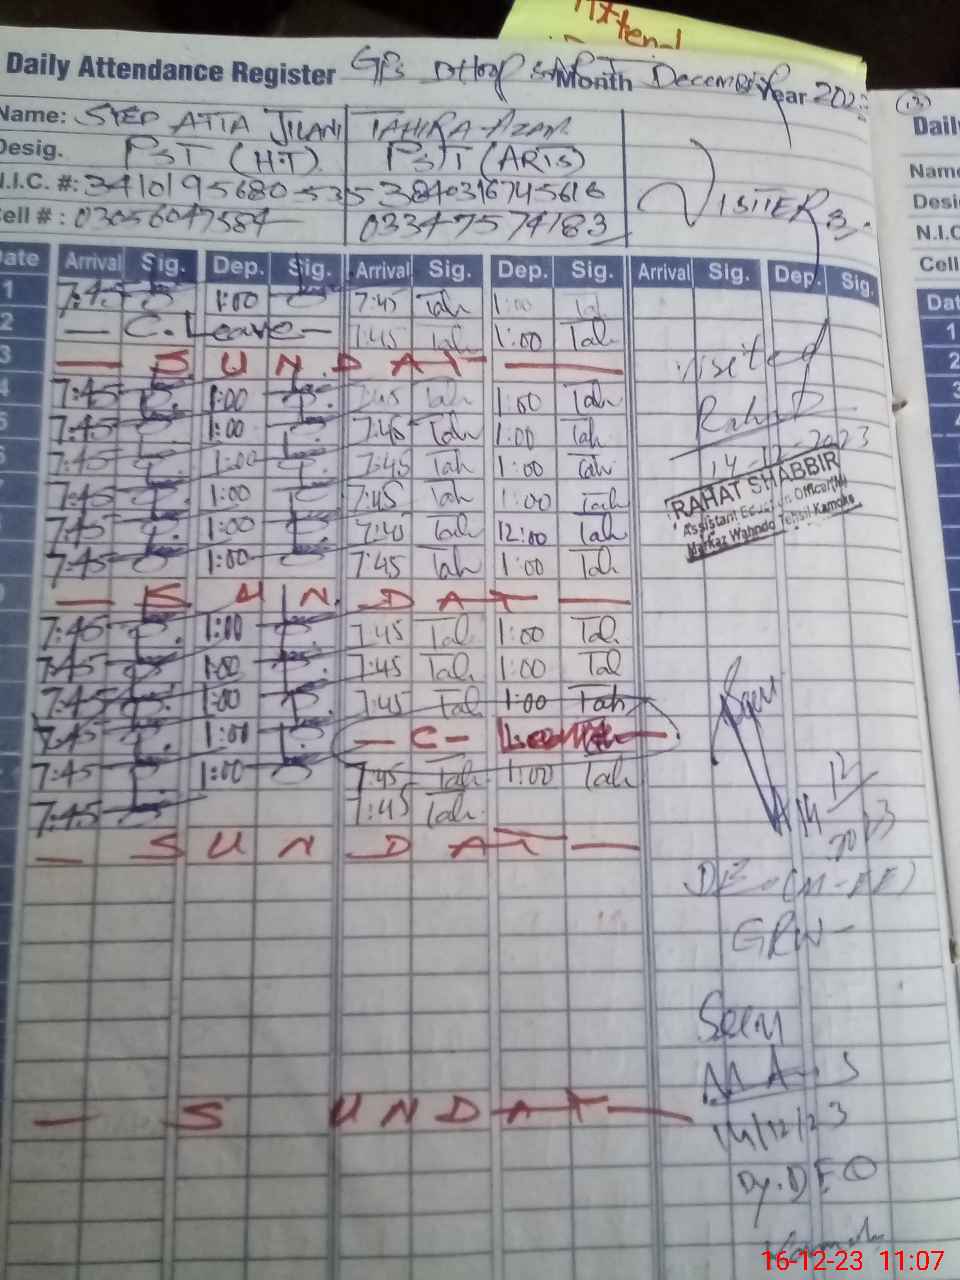 Atten-l
Daily Attendance Register GPS DHOOP SARI Month December Year 202
Name: SYED ATIA JILANI TAHIRA AZAM
Desig. PST (HT) PST (ARTS)
N.I.C. #: 3410195680535 3840316745616
Cell #: 03056047584 03347574183 VISITERS
Date Arrival Sig. Dep. Sig. Arrival Sig. Dep. Sig. Arrival Sig. Dep. Sig.
1 7:45 1:00 7:45 Tah 1:00 Tah
2 — C. Leave — 7:45 Tah 1:00 Tah
3 — S U N D A Y —
4 7:45 1:00 7:45 Tah 1:00 Tah
5 7:45 1:00 7:45 Tah 1:00 Tah
7:45 1:00 7:45 Tah 1:00 Tah
7:45 1:00 7:45 Tah 1:00 Tah
7:45 1:00 7:45 Tah 12:00 Tah
7:45 1:00 7:45 Tah 1:00 Tah
— S U N D A Y —
7:45 1:00 7:45 Tah 1:00 Tah
7:45 1:00 7:45 Tah 1:00 Tah
7:45 1:00 7:45 Tah 1:00 Tah
7:45 1:00 — C -
7:45 1:00 7:45 Tah 1:00 Tah
7:45 7:45 Tah
— S U N D A Y —
— S U N D A Y —
visited
14-12-2023
RAHAT SHABBIR
Assistant Education Officer(M)
Markaz Wahndo Tehsil Kamoke
14 12
2023
DEO (M-EE)
GRW
Seen
14/12/23
Dy. DEO
13
Daily
Name
Desi
N.I.C
Cell
Dat
1
2
3
16-12-23 11:07